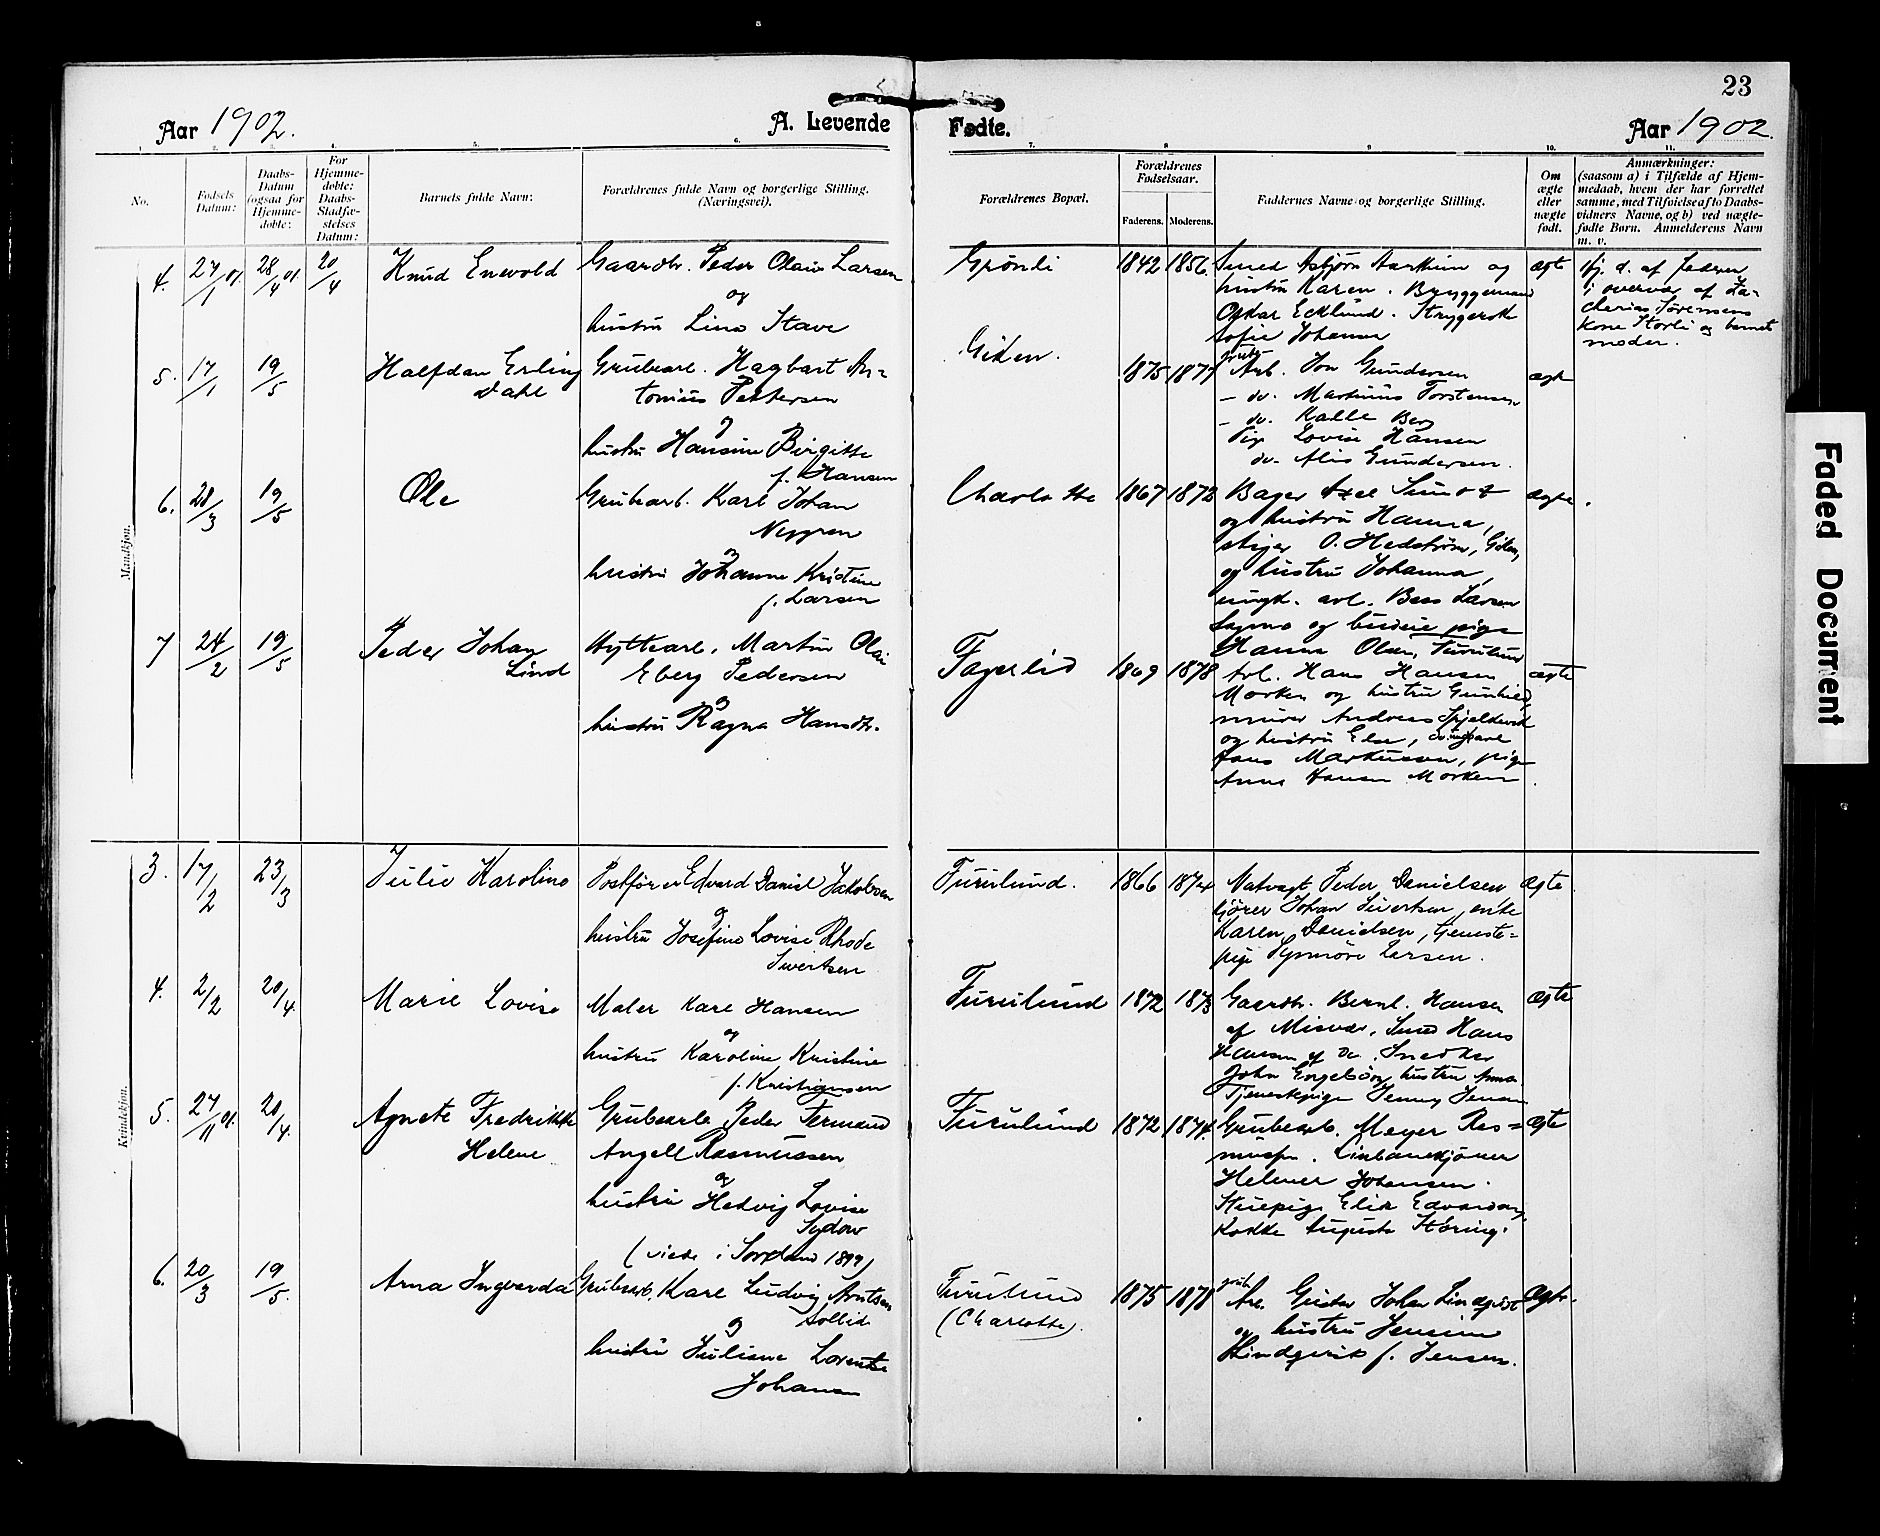 23
Aar 1902.
A. Levende
Fødte.
Aar 1902.
No.
Fødsels Datum:
Daabs-Datum (ogsaa for Hjemmedøbte:
For Hjemme-døbte: Daabs-Stadfæ-stelses Datum:
Barnets fulde Navn:
Forældrenes fulde Navn og borgerlige Stilling. (Næringsvei).
Forældrenes Bopæl.
Forældrenes Fødselsaar.
Faderens.
Moderens.
Faddernes Navne og borgerlige Stilling.
Om ægte eller uægte født.
Anmærkninger:
(saasom a) i Tilfælde af Hjem-
medaab, hvem der har forrettet
samme, med Tilføielse af to Daabs-
vidners Navne, og b) ved uægte-
fødte Børn. Anmelderens Navn
m. v.
Mandkjøn.
4. 27/1 01. 28/4 01. 20/4 Knud Enevold
Gaardbr. Peder Olai Larsen
og
hustru Lina Stave
Grønli 1842 1856
Smed Asbjørn Aarheim og
hustru Karen. Bryggemand
Oskar Ecklund. Strygersk
Sofie Johansen
ægte
hj. d. af faderen
i overvær af Za-
charias Sørensens
kone Storli og barnets
moder.
5. 17/1 19/5 Halfdan Erling
Dahl
Grubearb. Hagbart An-
tonius Pettersen
og
hustru Hansine Birgitte
f. Hansen
Giken. 1875 1877
Grube-
Arb. Jon Gundersen
- do. Martinus Torstensen
- do. Kalle Berg
Pige Lovise Hansen
do. Alis Gundersen.
ægte
6. 28/3 19/5 Ole
Grubearb. Karl Johan
Nygren
og
hustru Johanne Kristine
f. Larsen
Charlotte 1867 1872
Bager Axel
og hustru Hanna,
stiger O. Hedstrøm, Giken,
og hustru Johanna,
ungk. arb. Larsen
og budeie pige
Hanna Olsen, Furulund
ægte.
7 24/2 19/5 Peder Johan
Lind
Hyttearb. Martin Olai
Eberg Pedersen
og
hustru Ragna Hansdtr.
Fagerlid 1869 1878
Arb. Hans Hansen
Morken og hustru Gunhild,
murer Andreas Spjeldkvik
og hustru Else,
Jans Markussen, pige
Anna Hansen Morken.
ægte
Kvindekjøn.
3. 17/2 23/3 Julie Karoline
Postfører Edvard Daniel Jakobsen
og
hustru Josefine Lovise Rhode
Sivertsen
Furulund. 1866 1874
Natvagt Peder Danielsen
kjører Johan Sivertsen, enke
Karen Danielsen, tjeneste-
pige Synnøve Larsen.
Ægte
4. 2/2 20/4 Marie Lovise
Maler Karl Hansen
og
hustru Karoline Kristine
f. Kristiansen
Furulund 1872 1873
Gaardbr. Bernt. Hansen
af Misvær, Smed Hans
Hansen af do. Snedker
John Engelsøy, hustru Anna.
Tjenestepige Jenny Jensen
Ægte
5. 27/11 01. 20/4. Agnete Fredrikke
Helene
Grubearb. Peder Fermand
Angell Rasmussen
og
hustru Hedvig Lovise
Sydow
(viede i Sortland 1899)
Furulund 1872 1874.
Grubearb. Meyer Ras-
mussen. Linbanekjører
Helmer Johansen.
Stuepige Elise
Kokke Augusta Horing.
Ægte
6. 20/3 19/5. Arna Ingvarda
Grubearb. Karl Ludvig Arntsen
Sollid
og
hustru Juliane Lorentse
Johansen
Furulund
(Charlotte). 1875 1878
grube
Arb. Gustav Johan Lindqvist
og hustru Jensine
Lindqvist f. Jensen.
Ægte.
Faded Document